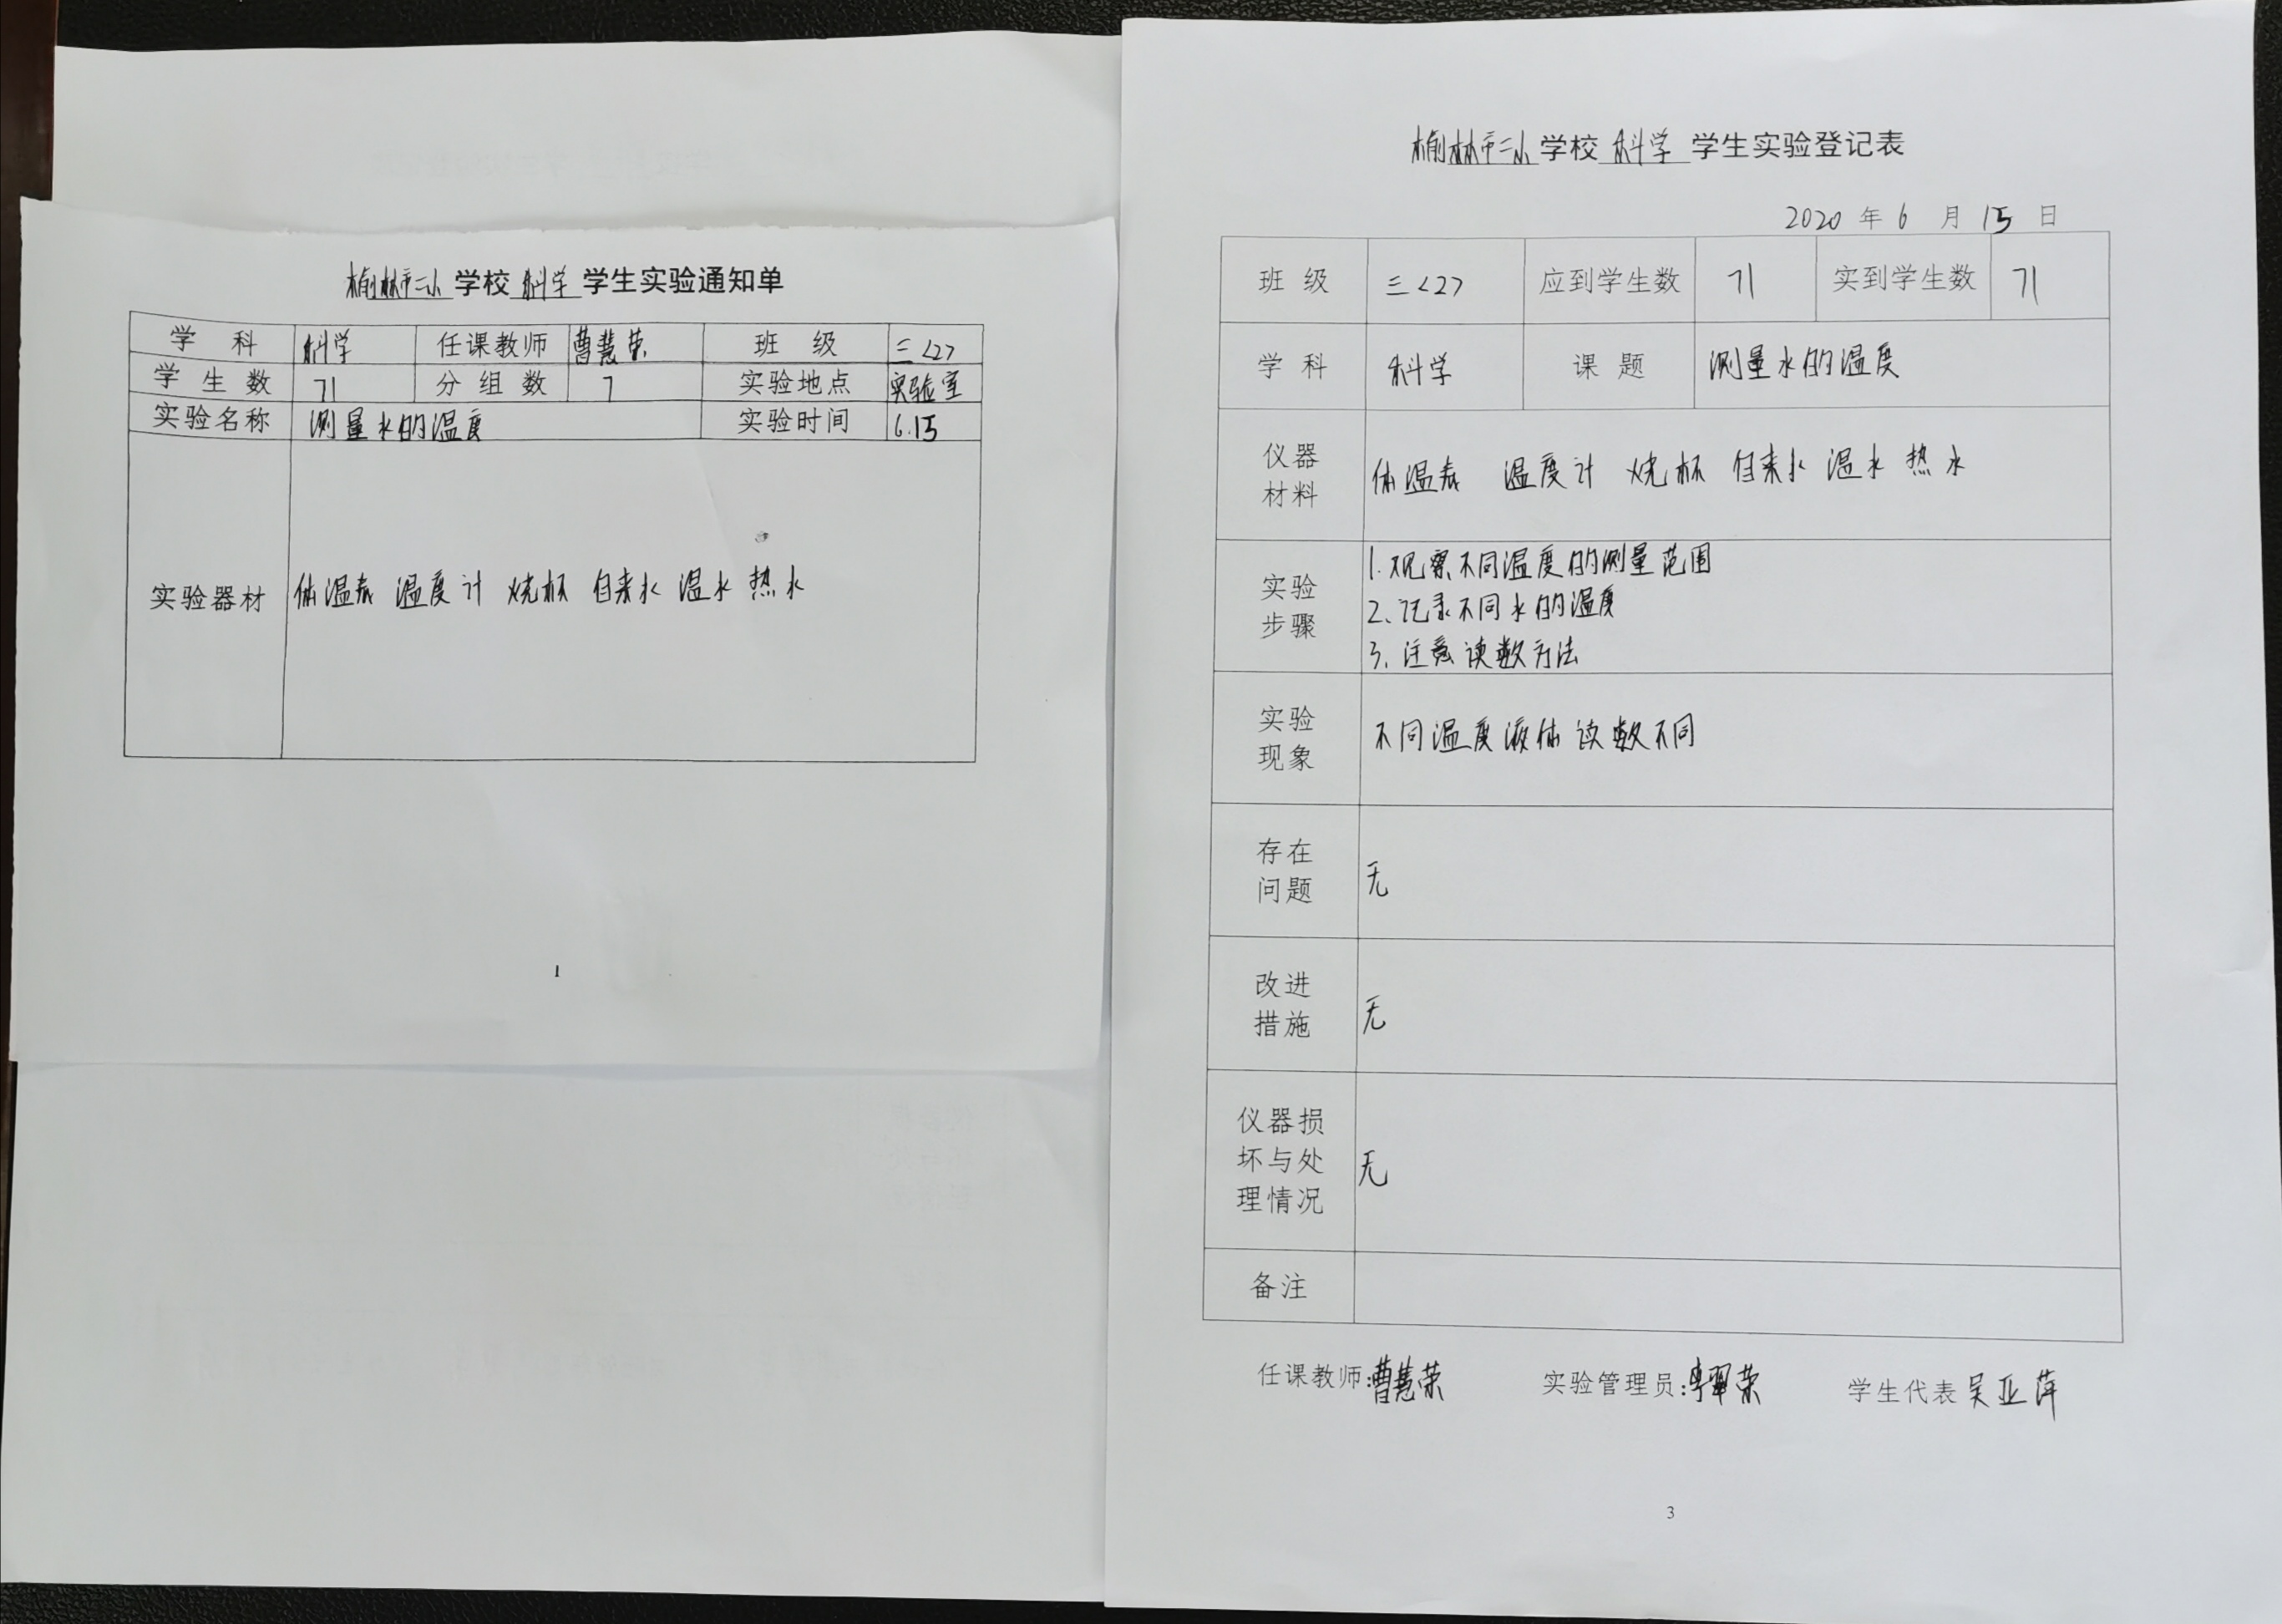 榆林市二小学校 科学 学生实验通知单
学科 科学 任课教师 曹慧荣 班级 三<2>
学生数 71 分组数 7 实验地点 实验室
实验名称 测量水的温度 实验时间 6.15
实验器材 体温表 温度计 烧杯 自来水 温水 热水
1
榆林市二小学校 科学 学生实验登记表
2020 年 6 月 15 日
班级 三<2> 应到学生数 71 实到学生数 71
学科 科学 课题 测量水的温度
仪器
材料
体温表 温度计 烧杯 自来水 温水 热水
实验
步骤
1.观察不同温度的测量范围
2、记录不同水的温度
3、注意读数方法
实验
现象
不同温度液体读数不同
存在
问题
无
改进
措施
无
仪器损
坏与处
理情况
无
备注
任课教师:曹慧荣 实验管理员:李翠荣 学生代表 吴亚萍
3